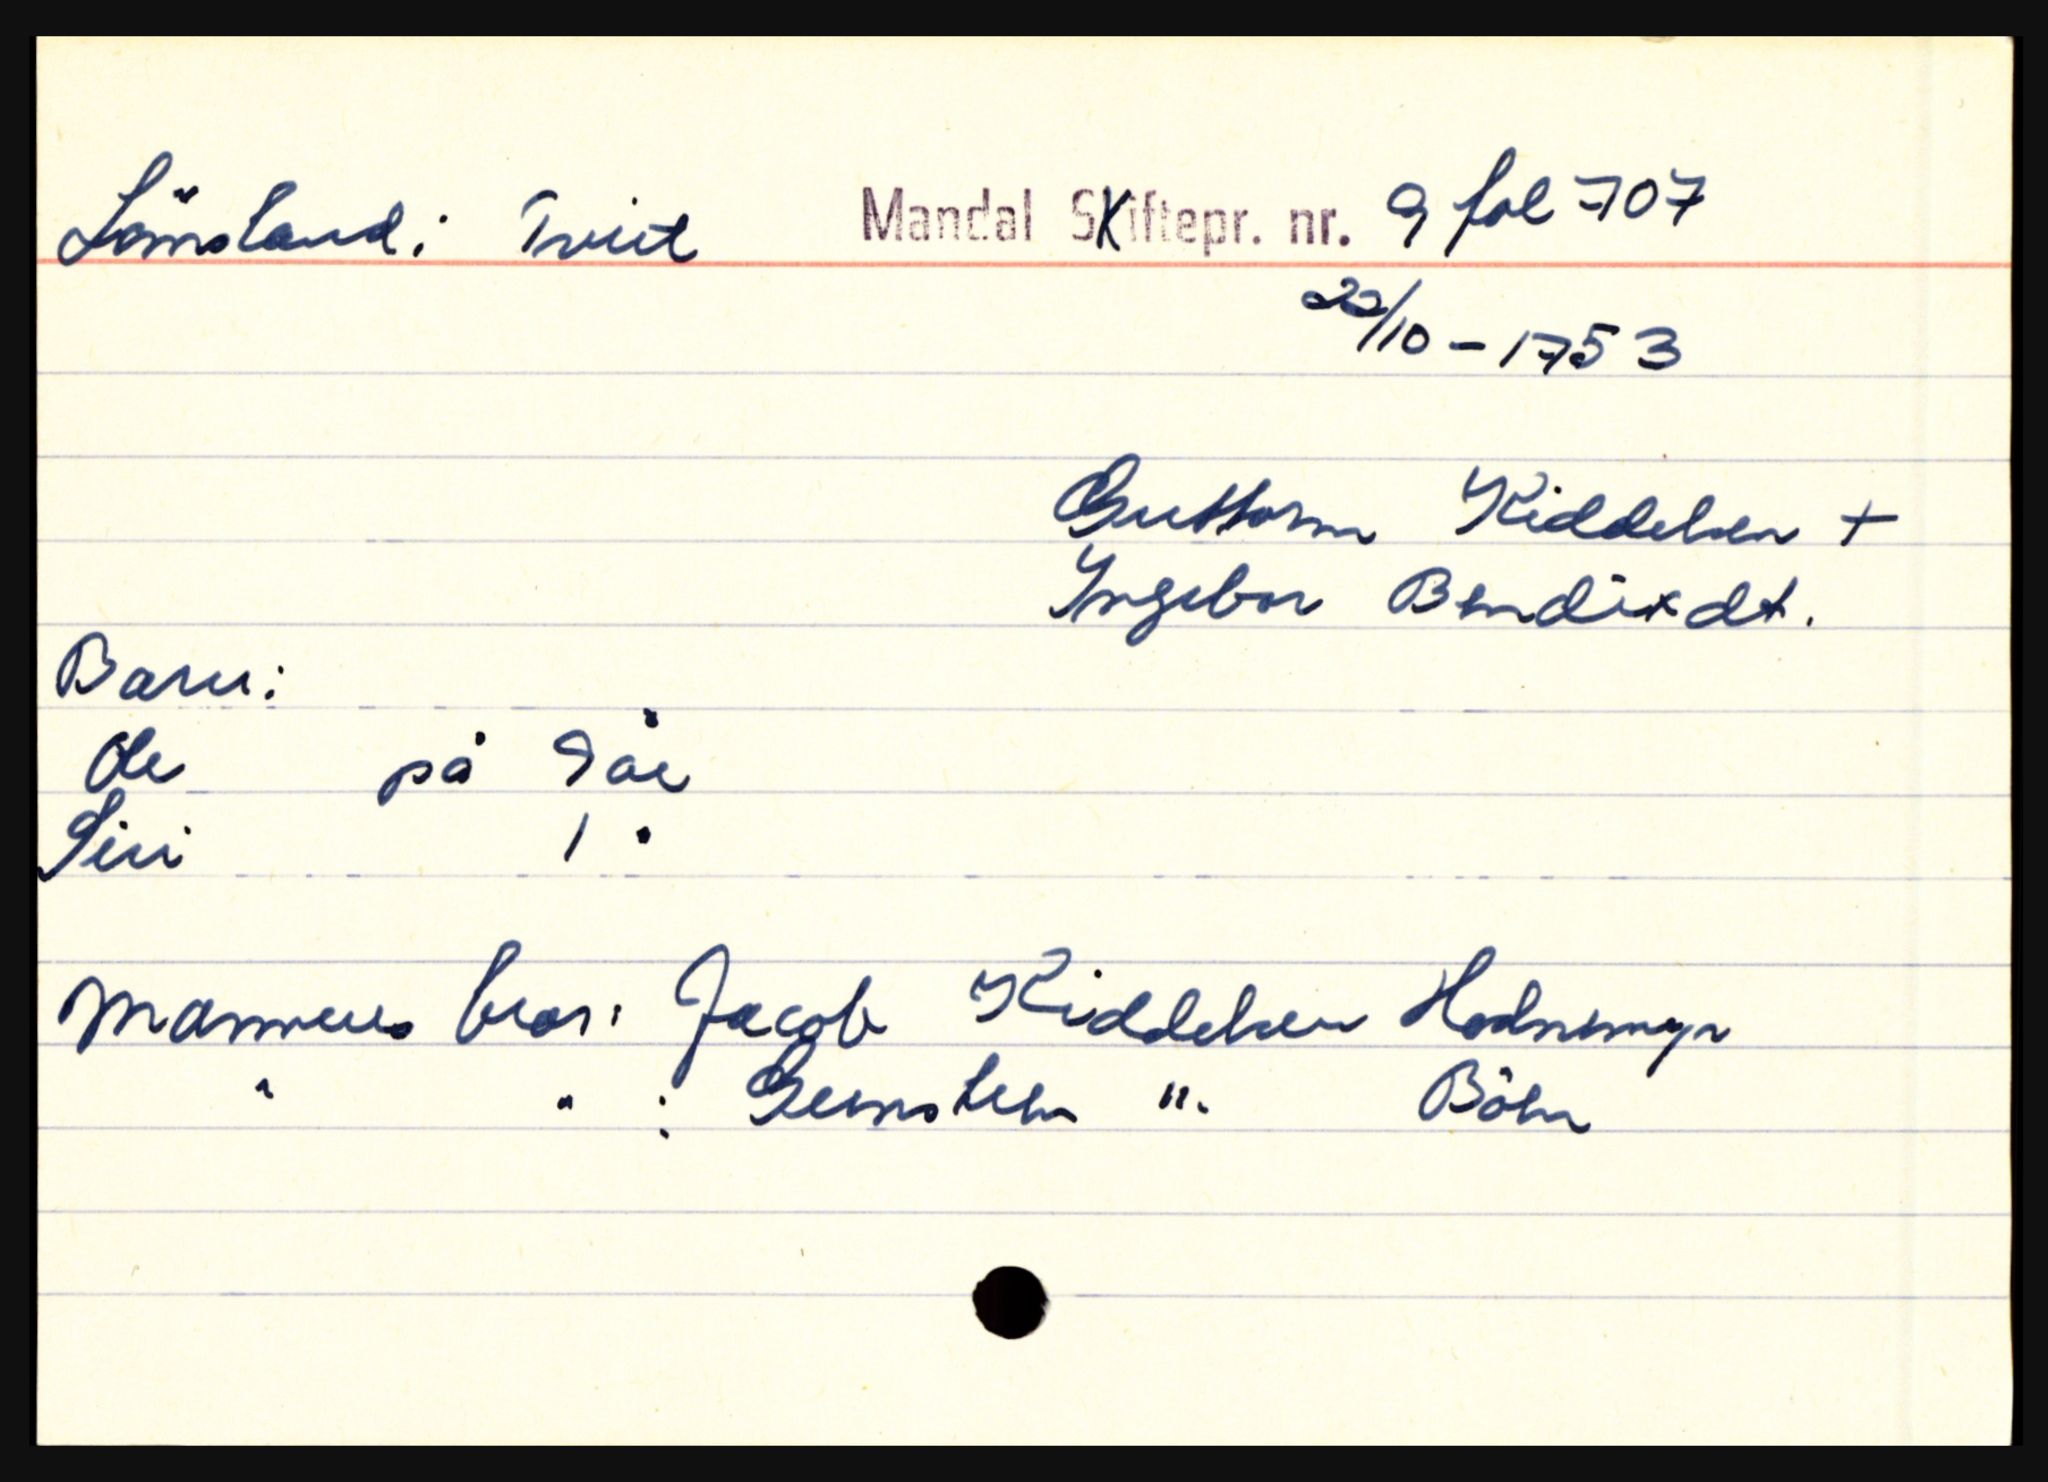 Lömsland i Tveit Mandal Skiftepr. nr. 9 fol 707
22/10-1753
Guttorm Kiddelsen +
Ingebor Bendixdt.
Barn:
Ole på 9 år
Siri 1 "
Mannens bror: Jacob Kiddelsen Hodnemyr
" " : " Böhn